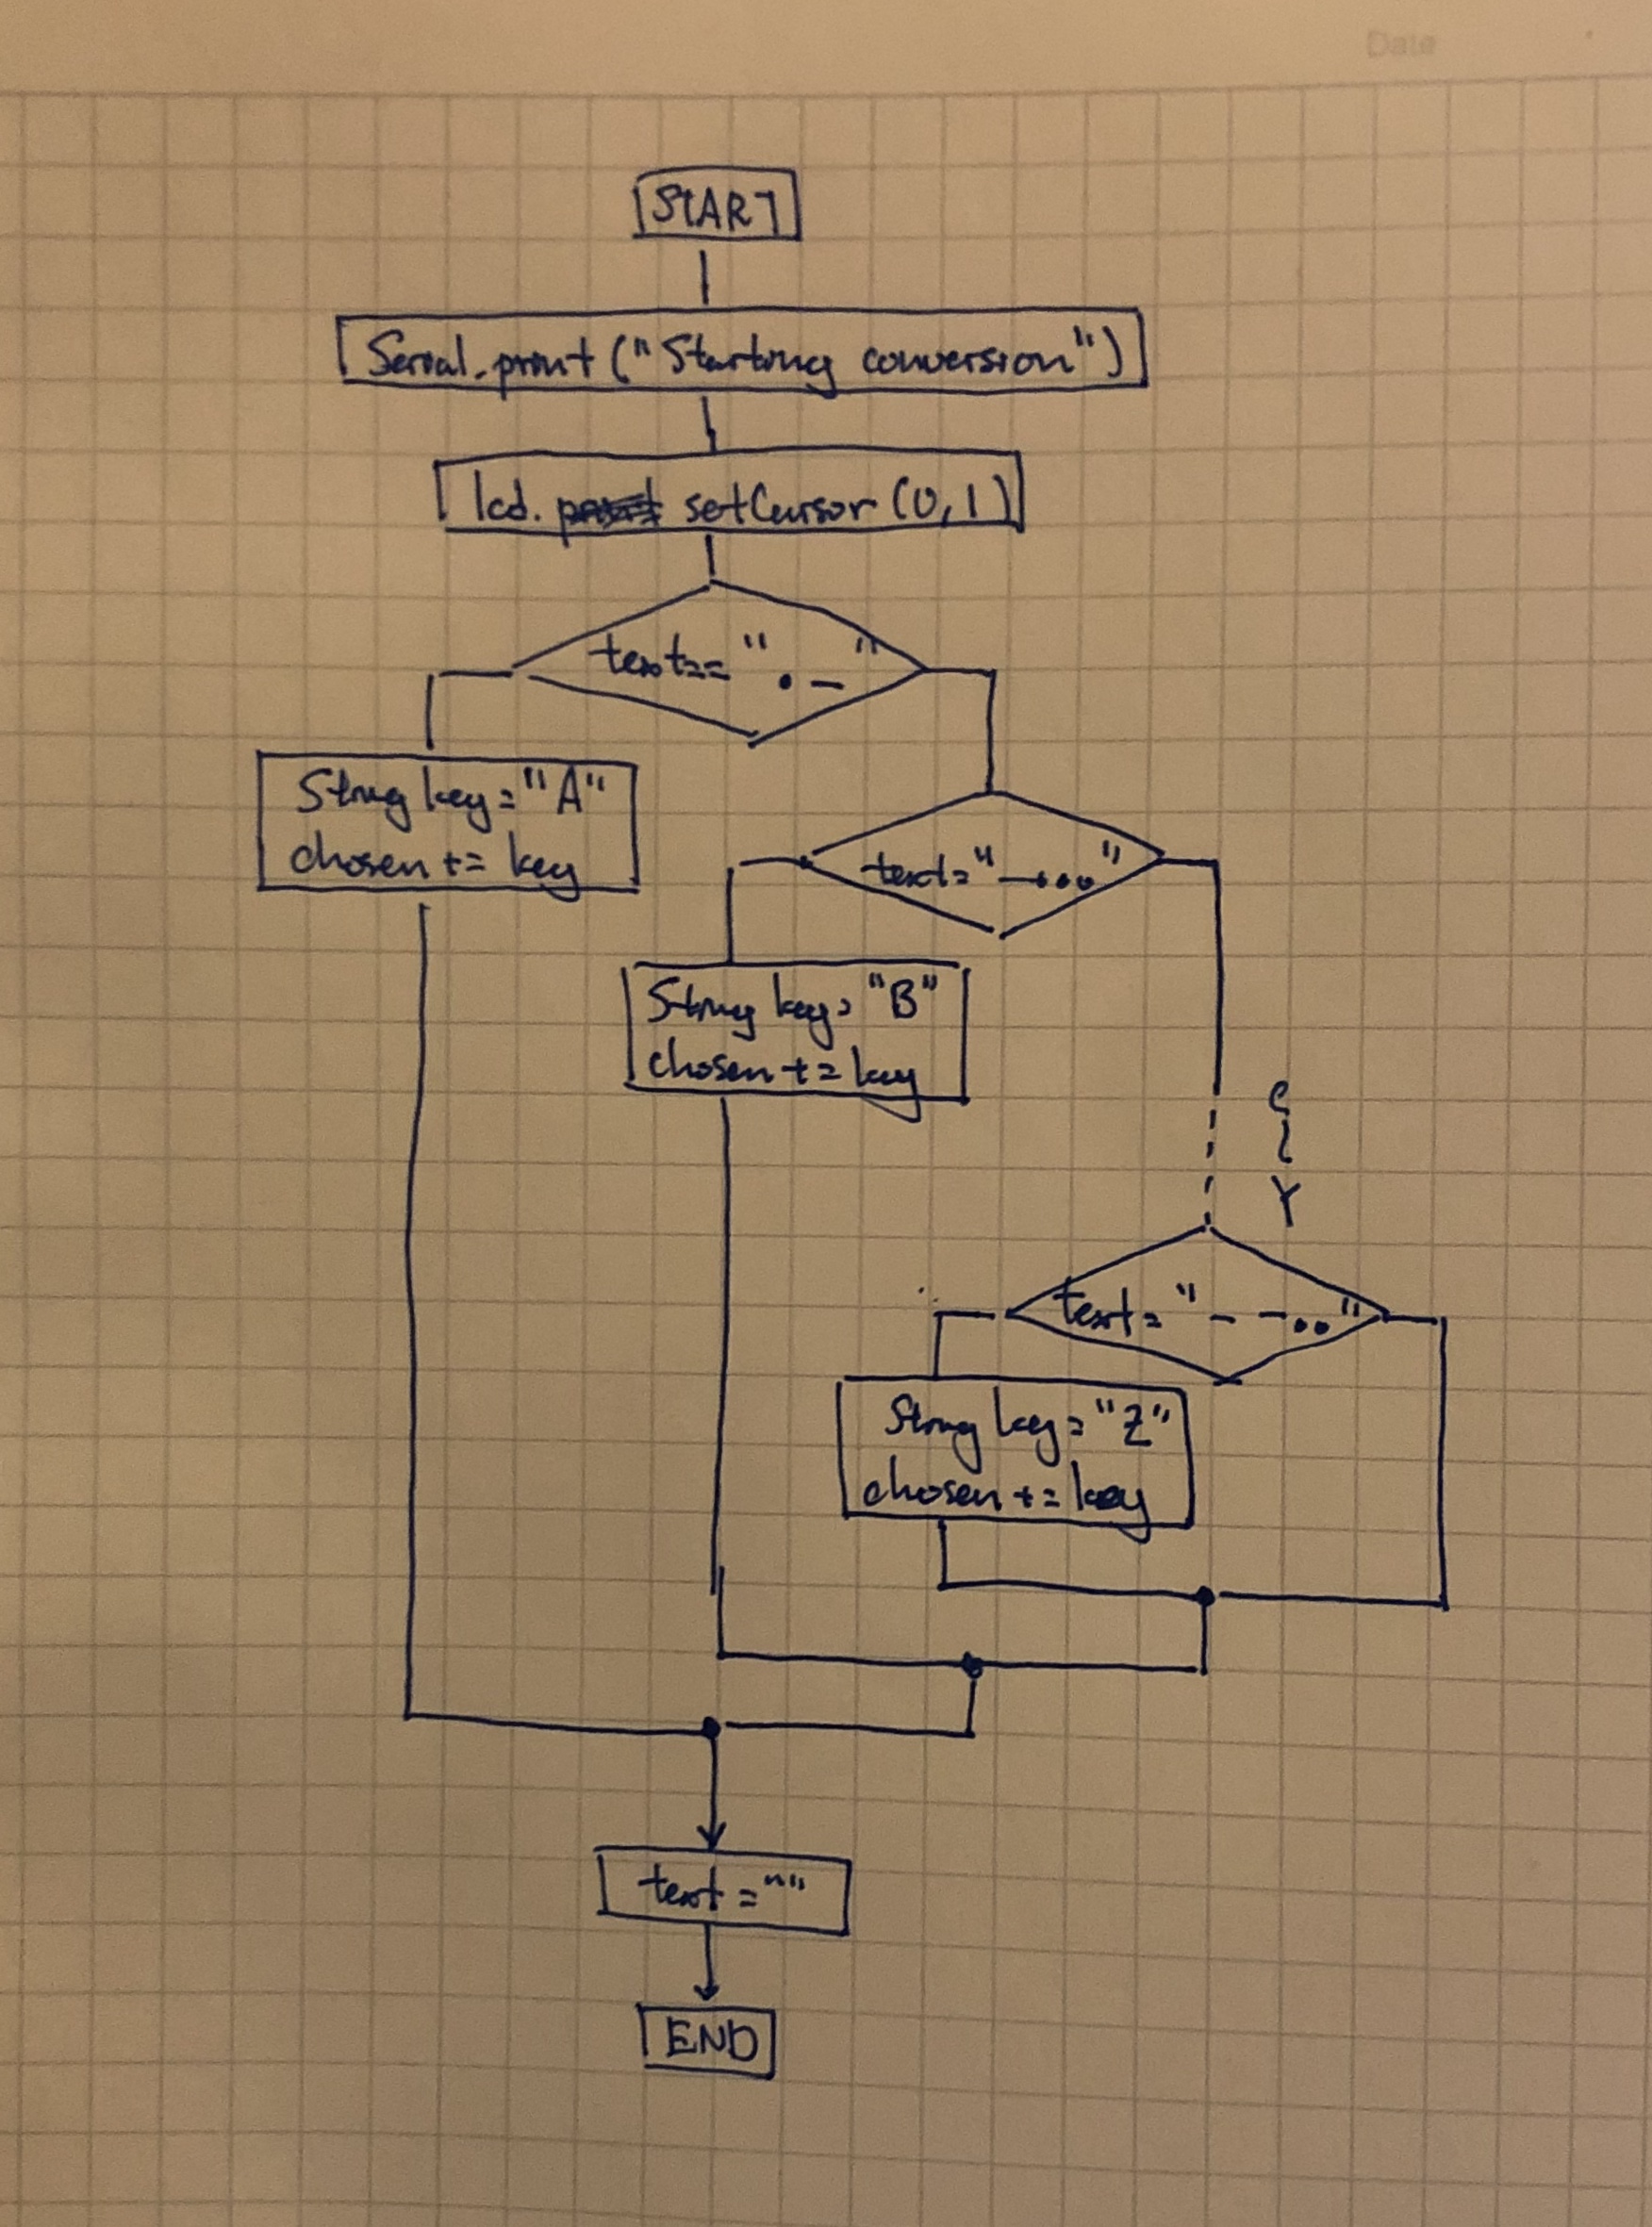 Date
START
Serial.print ("Starting conversion")
lcd. setCursor (0,1)
text== ". _"
String key = "A"
chosen += key
text= "—..."
String key = "B"
chosen += key
C
~
Y
text= "— —.."
String key = "Z"
chosen += key
text = ""
END